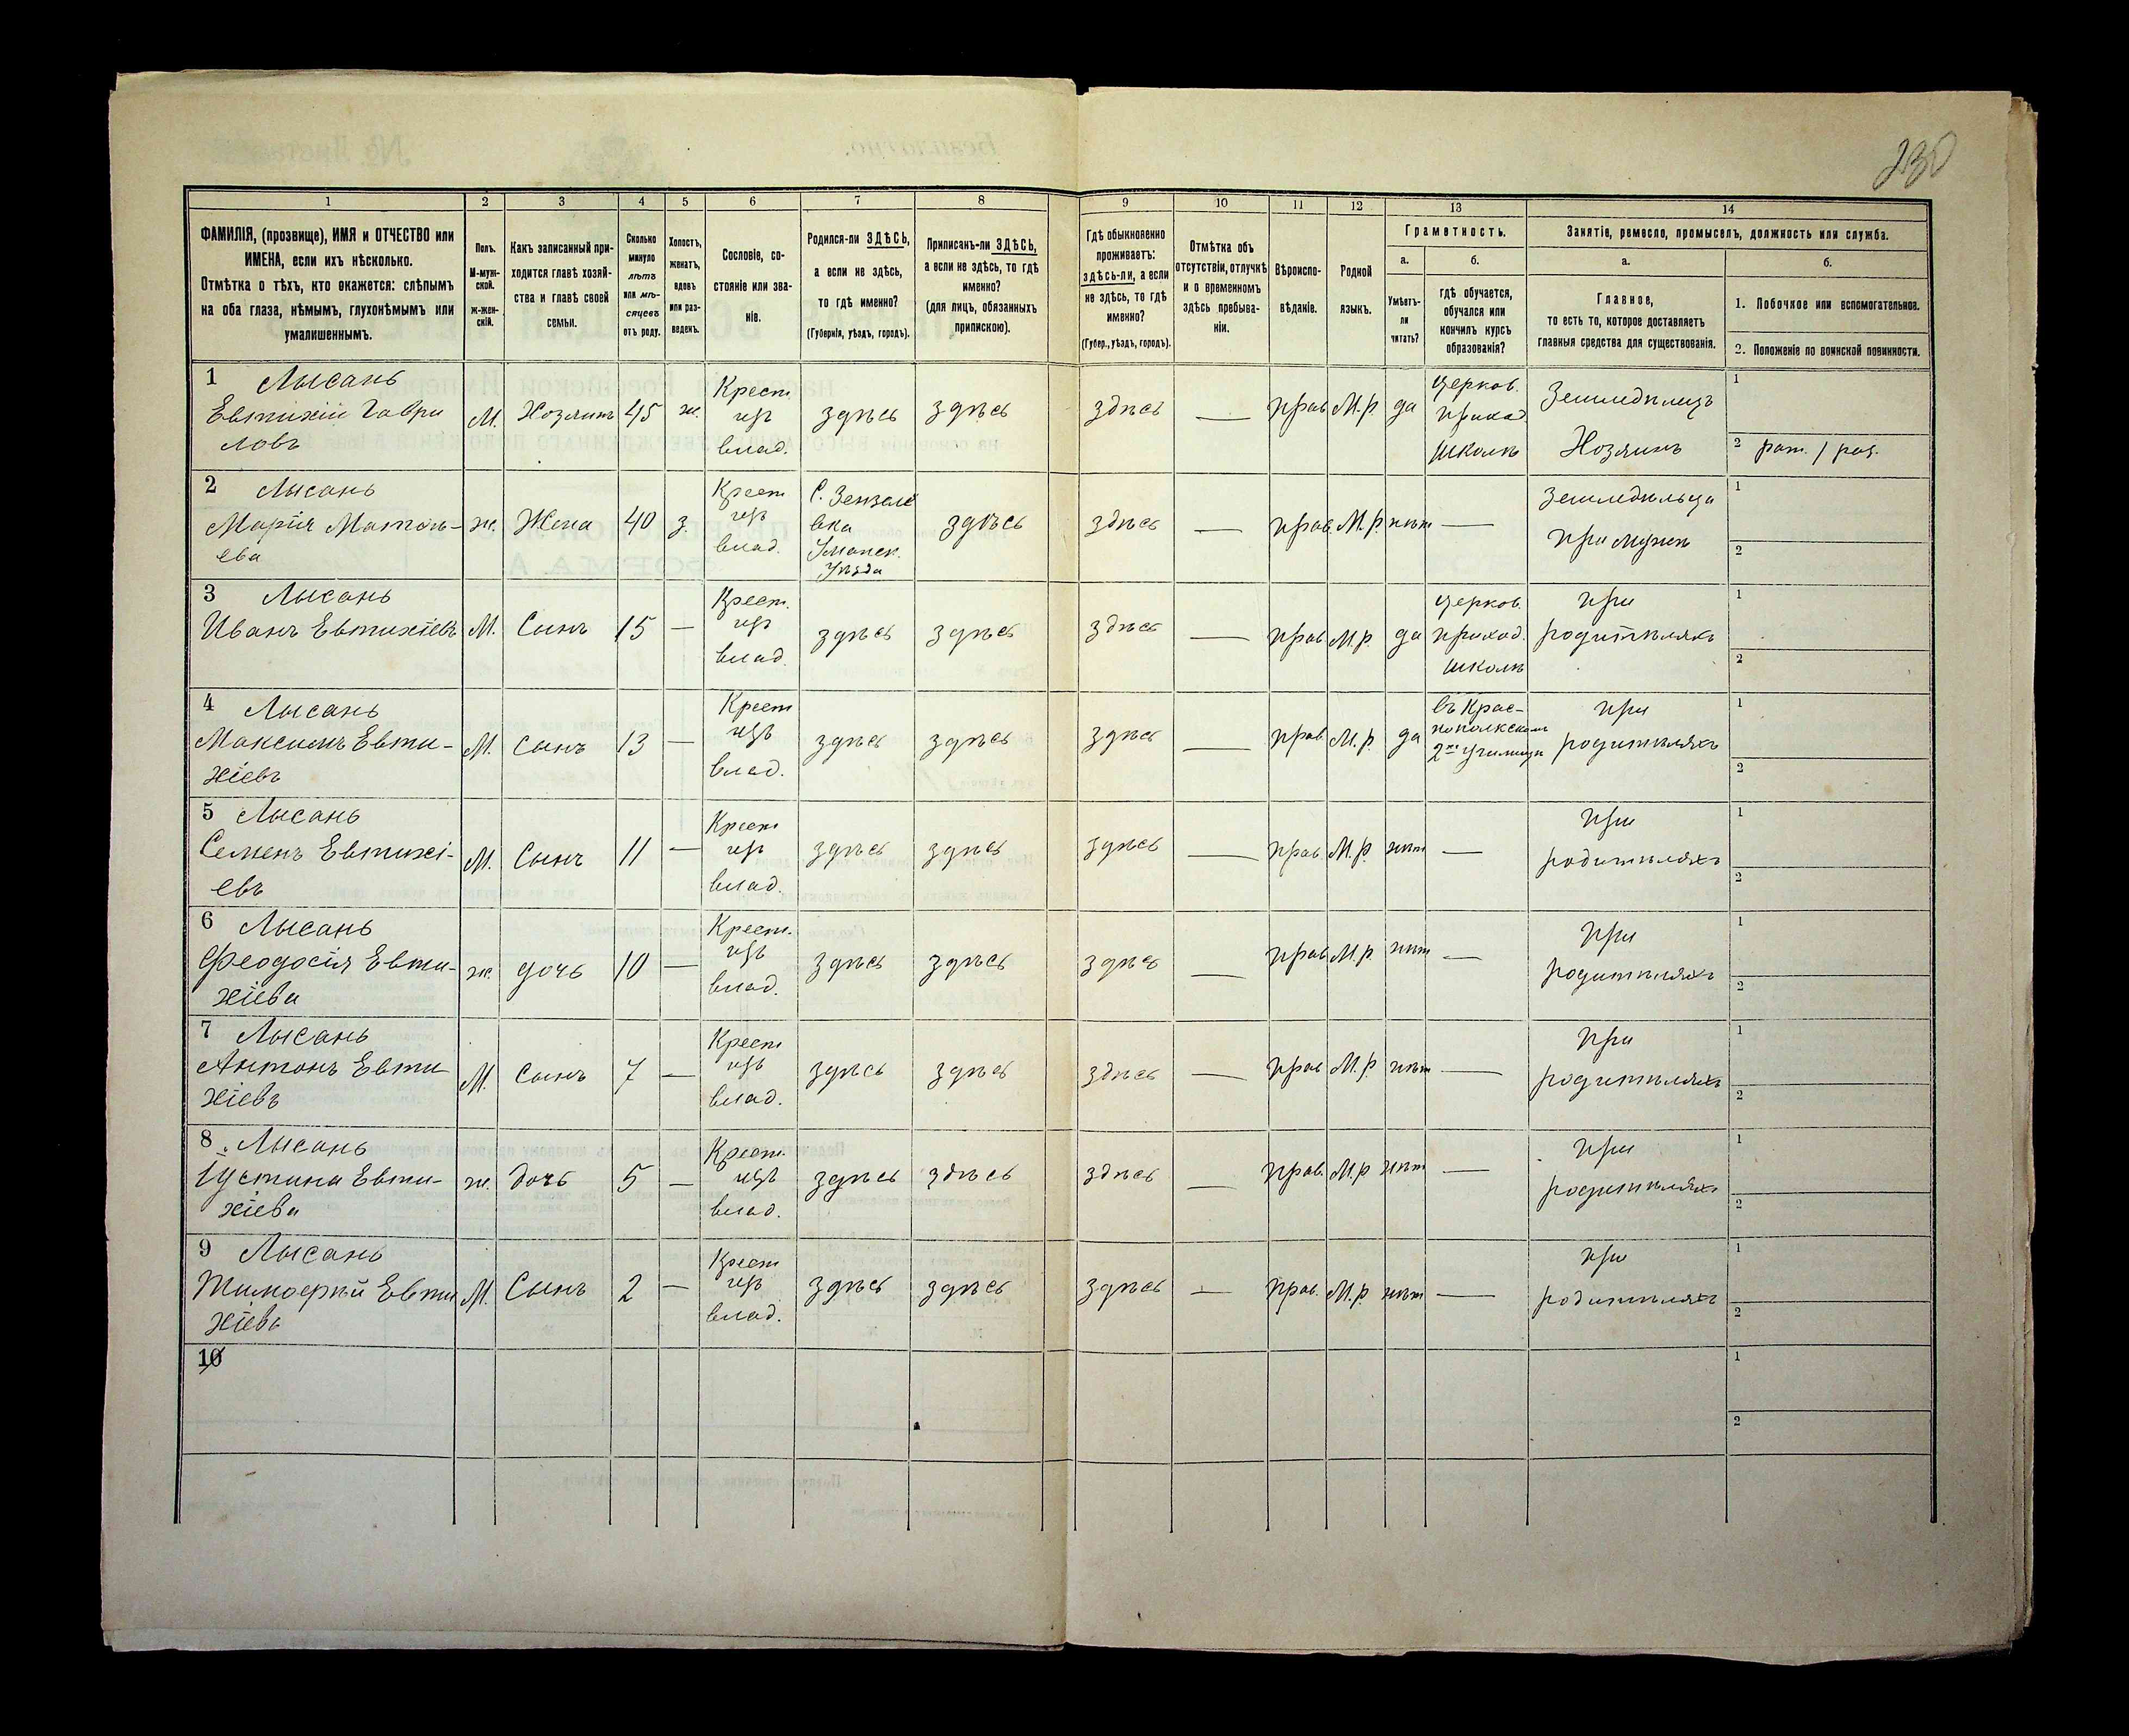 230
1 2 3 4 5 6 7 8 9 10 11 12 13 14
ФАМИЛІЯ, (прозвище), ИМЯ и ОТЧЕСТВО или
ИМЕНА, если ихъ нѣсколько.
Отмѣтка о тѣхъ, кто окажется: слѣпымъ
на оба глаза, нѣмымъ, глухонѣмымъ или
умалишеннымъ.
Полъ.
М-муж-
ской.
Ж-жен-
скій.
Какъ записанный при-
ходится главѣ хозяй-
ства и главѣ своей
семьи.
Сколько
минуло
лѣтъ
или мѣ-
сяцевъ
отъ роду.
Холостъ,
женатъ,
вдовъ
или раз-
веденъ.
Сословіе, со-
стояніе или зва-
ніе.
Родился-ли ЗДѢСЬ,
а если не здѣсь,
то гдѣ именно?
(Губернія, уѣздъ, городъ).
Приписанъ-ли ЗДѢСЬ,
а если не здѣсь, то гдѣ
именно?
(для лицъ, обязанныхъ
припискою).
Гдѣ обыкновенно
проживаетъ:
здѣсь-ли, а если
не здѣсь, то гдѣ
именно?
(Губер., уѣздъ, городъ).
Отмѣтка объ
отсутствіи, отлучкѣ
и о временномъ
здѣсь пребыва-
ніи.
Вѣроиспо-
вѣданіе.
Родной
языкъ.
Грамотность.
а.
Умѣетъ-
ли
читать?
б.
гдѣ обучается,
обучался или
кончилъ курсъ
образованія?
Занятіе, ремесло, промыселъ, должность или служба.
а.
Главное,
то есть то, которое доставляетъ
главныя средства для существованія.
б.
1. Побочное или вспомогательное.
2. Положеніе по воинской повинности.
1 Лысань
Евтихій Гаври
ловъ
М. Хозяинъ 45 ж.
Крест.
изъ
влад.
здѣсь здѣсь здѣсь — прав М.р. да
Церков.
приход.
школѣ
Земледѣлецъ
Хозяинъ
1
2
2 Лысань
Марія Матвѣ-
ева
ж. Жена 40 з.
Крест
изъ
влад.
С.
вка
Уманск.
Уѣзда
здѣсь здѣсь — прав. М.р. нѣт —
Земледѣльца
при мужѣ
1
2
3 Лысань
Иванъ Евтихіевъ
М. Сынъ 15 —
Крест.
изъ
влад.
здѣсь здѣсь здѣсь — прав М.р. да
Церков.
приход.
школѣ
при
родителяхъ
1
2
4 Лысань
Максимъ Евти-
хіевъ
М. Сынъ 13 —
Крест
изъ
влад.
здѣсь здѣсь здѣсь — прав М.р. да
въ Крас-
нополкском
при
родителяхъ
1
2
5 Лысань
Семенъ Евтихі-
евъ
М. Сынъ 11 —
Крест
изъ
влад.
здѣсь здѣсь здѣсь — прав. М.р. нѣт —
при
родителяхъ
1
2
6 Лысань
Феодосія Евти-
хіева
ж дочь 10 —
Крест.
изъ
влад.
здѣсь здѣсь здѣсь — прав М.р. нѣт —
при
родителяхъ
1
2
7 Лысань
Антонъ Евти
хіевъ
М. Сынъ 7 —
Крест
изъ
влад.
здѣсь здѣсь здѣсь — прав М.р. нѣт —
при
родителяхъ
1
2
8 Лысань
Іустина Евти-
хіева
ж. дочь 5 —
Крест.
изъ
влад.
здѣсь здѣсь здѣсь — прав. М.р нѣт —
при
родителяхъ
1
2
9 Лысань
Тимофей Евти
хіевъ
М. Сынъ 2 —
Крест
изъ
влад.
здѣсь здѣсь здѣсь — прав. М.р. нѣт —
при
родителяхъ
1
2
10
1
2